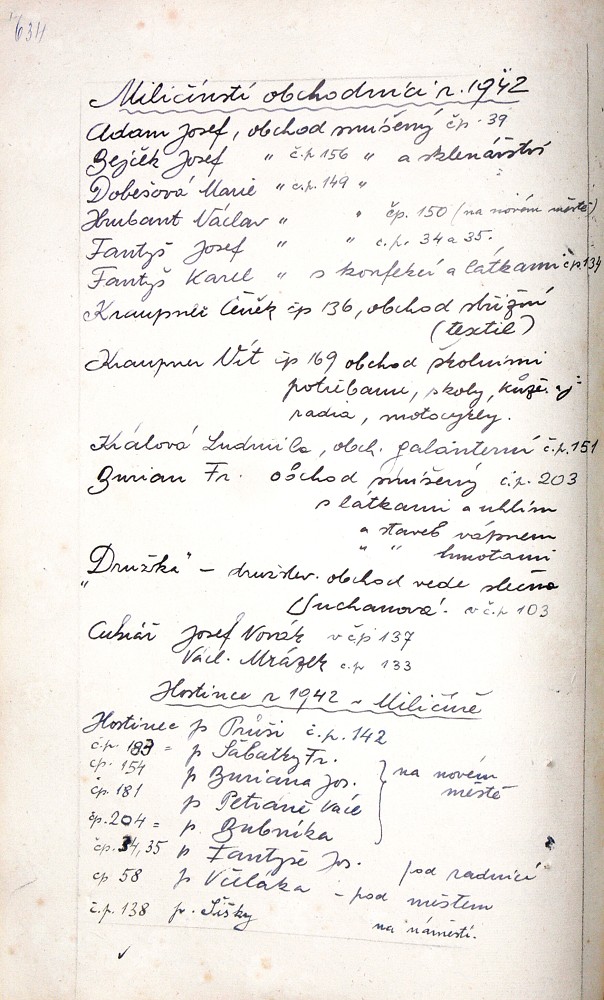 634
Miličínští obchodníci r. 1942
Adam Josef, obchod smíšený čp. 39
Bejček Josef " č.p. 156 " a sklenářství
Dobešová Marie " č.p. 149 "
Hrubant Václav " " čp. 150 (na novém městě)
Fantyš Josef " " č.p. 34 a 35.
Fantyš Karel " s konfekcí a látkami čp 134
Kraupner Čeněk čp 136, obchod střižní
(textil)
Kraupner Vít čp 169 obchod školními
potřebami, skoly, kůže.
radia, motocykly.
Králová Ludmila, obch. galanterní č.p. 151
Burian Fr. obchod smíšený č.p. 203
s látkami a uhlím
a staveb vápnem
" " hmotami
"Družka" – družstev. obchod vede slečna
Suchanová. v č.p 103
Cukrář Josef Novák v čp 137
Václ. Mrázek č.p 133
Hostince r 1942 v Miličíně
Hostinec p Průši č.p. 142
č.p. 183 = p Sabatky Fr.
čp. 154 p Buriana Jos. na novém
čp. 181 p Petráně Václ městě
čp. 204 = p. Bubníka
čp. 34, 35 p Fantyše Jos. pod radnicí
čp 58 p Včeláka – pod městem
č.p. 138 p. Šišky na náměstí.